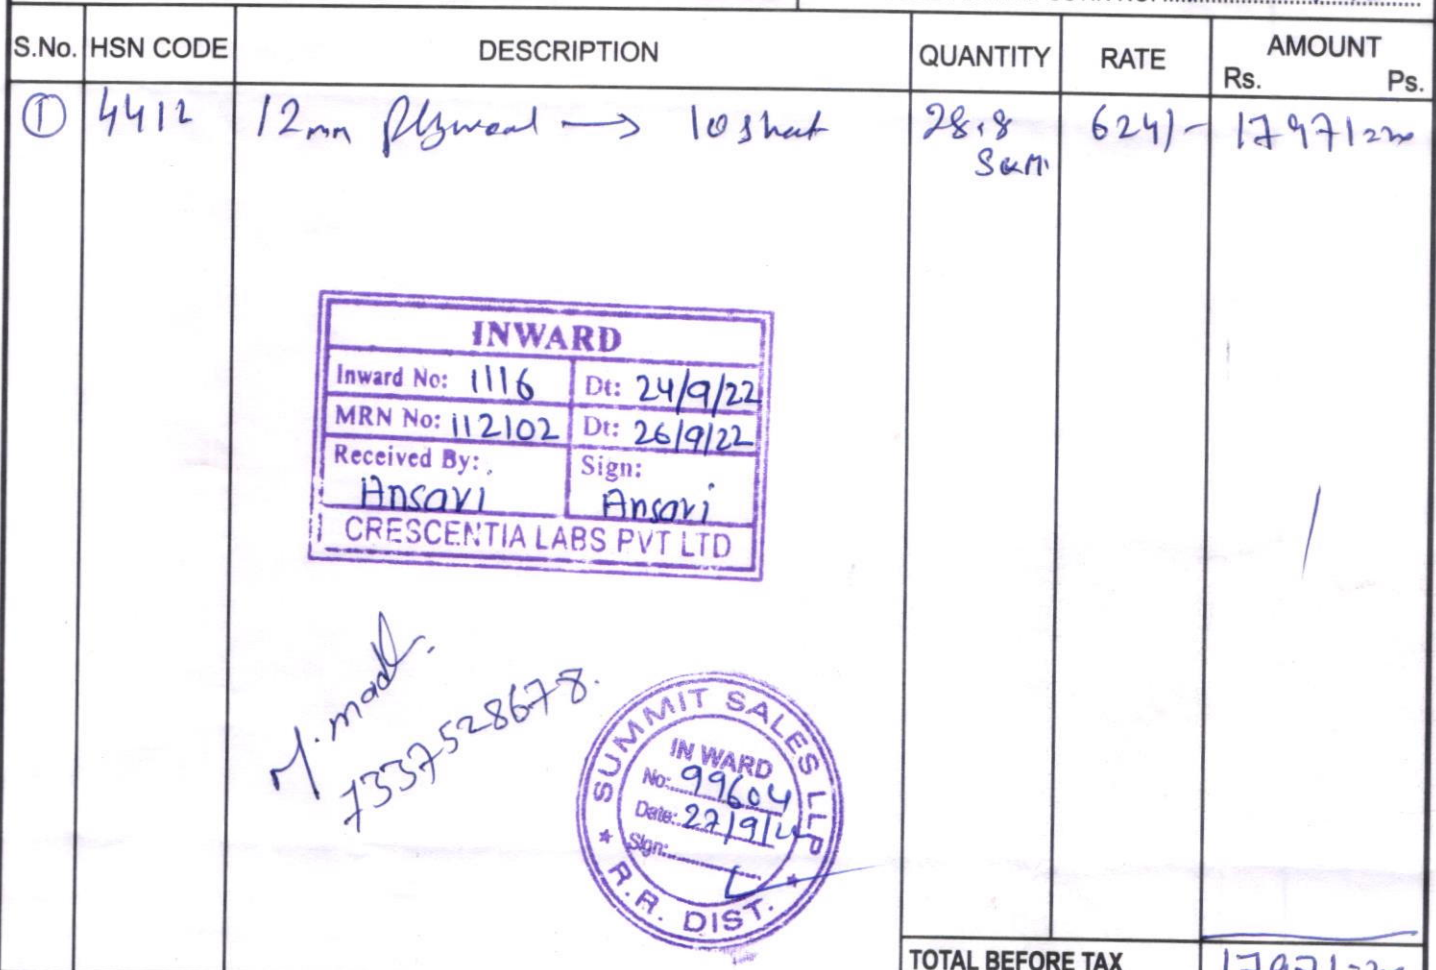 S.No. HSN CODE DESCRIPTION QUANTITY RATE AMOUNT
Rs. Ps.
① 4412 12mm Plywood → 10 sheet 28.8 624/- 17971
INWARD
Inward No: 1116 Dt: 24/9/22
MRN No: 112102 Dt: 26/9/22
Received By: Sign:
Ansari Ansari
CRESCENTIA LABS PVT LTD
7337528678.
SUMMIT SALES LLP
IN WARD
No: 99604
Date: 27/9/
Sign:
★ R.R. DIST. ★
TOTAL BEFORE TAX 17971